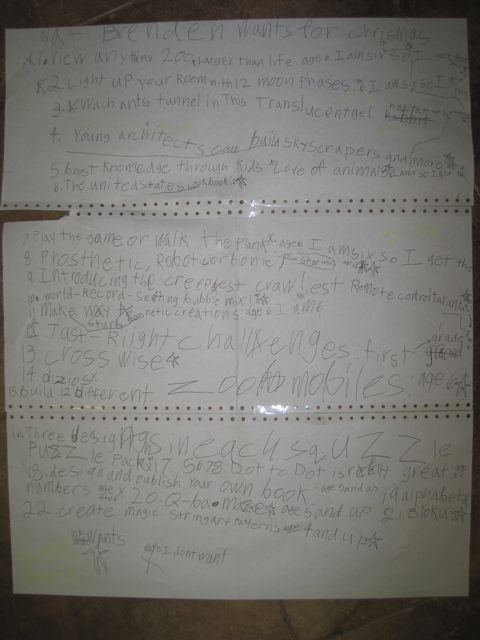 wat Brenden wants for chrismas
x1. view anything 200x larger than life age 6 I am six so I
x2. Light up your Room with 12 moon phases: 6 I am sy so I
3. x Wach ants tunnel in This Translucent gel habitat
4. Young architects can build skyscrapers and more
5. boost knowledge through kids Love of animals I am so I get
6. The united states cookbook
7. Play the game or walk the Plank x age 6 I am six so I get this
8. Prosthetic, Robotic or bionic
9. Introducing the creepiest crawliest Remote control tarantula
10. world-Record-setting bubble mix!
11. make wxy kinetic creations age 6 I am 6
12. Just-Riight challenges: first grade
13. cross wise
14. dizios x
15. build 12 different zoomobiles: age 6
16. Three designs in each squzzle
puzzle Pack 17. 5678 Dot to Dot is really great
18. design and publish your own book age 5 and up 19 alphabet
numbers x 20. Q-ba-maze age 5 and up 21. Blokus
22. create magic string art Patterns age 4 and up
wants
I dont want